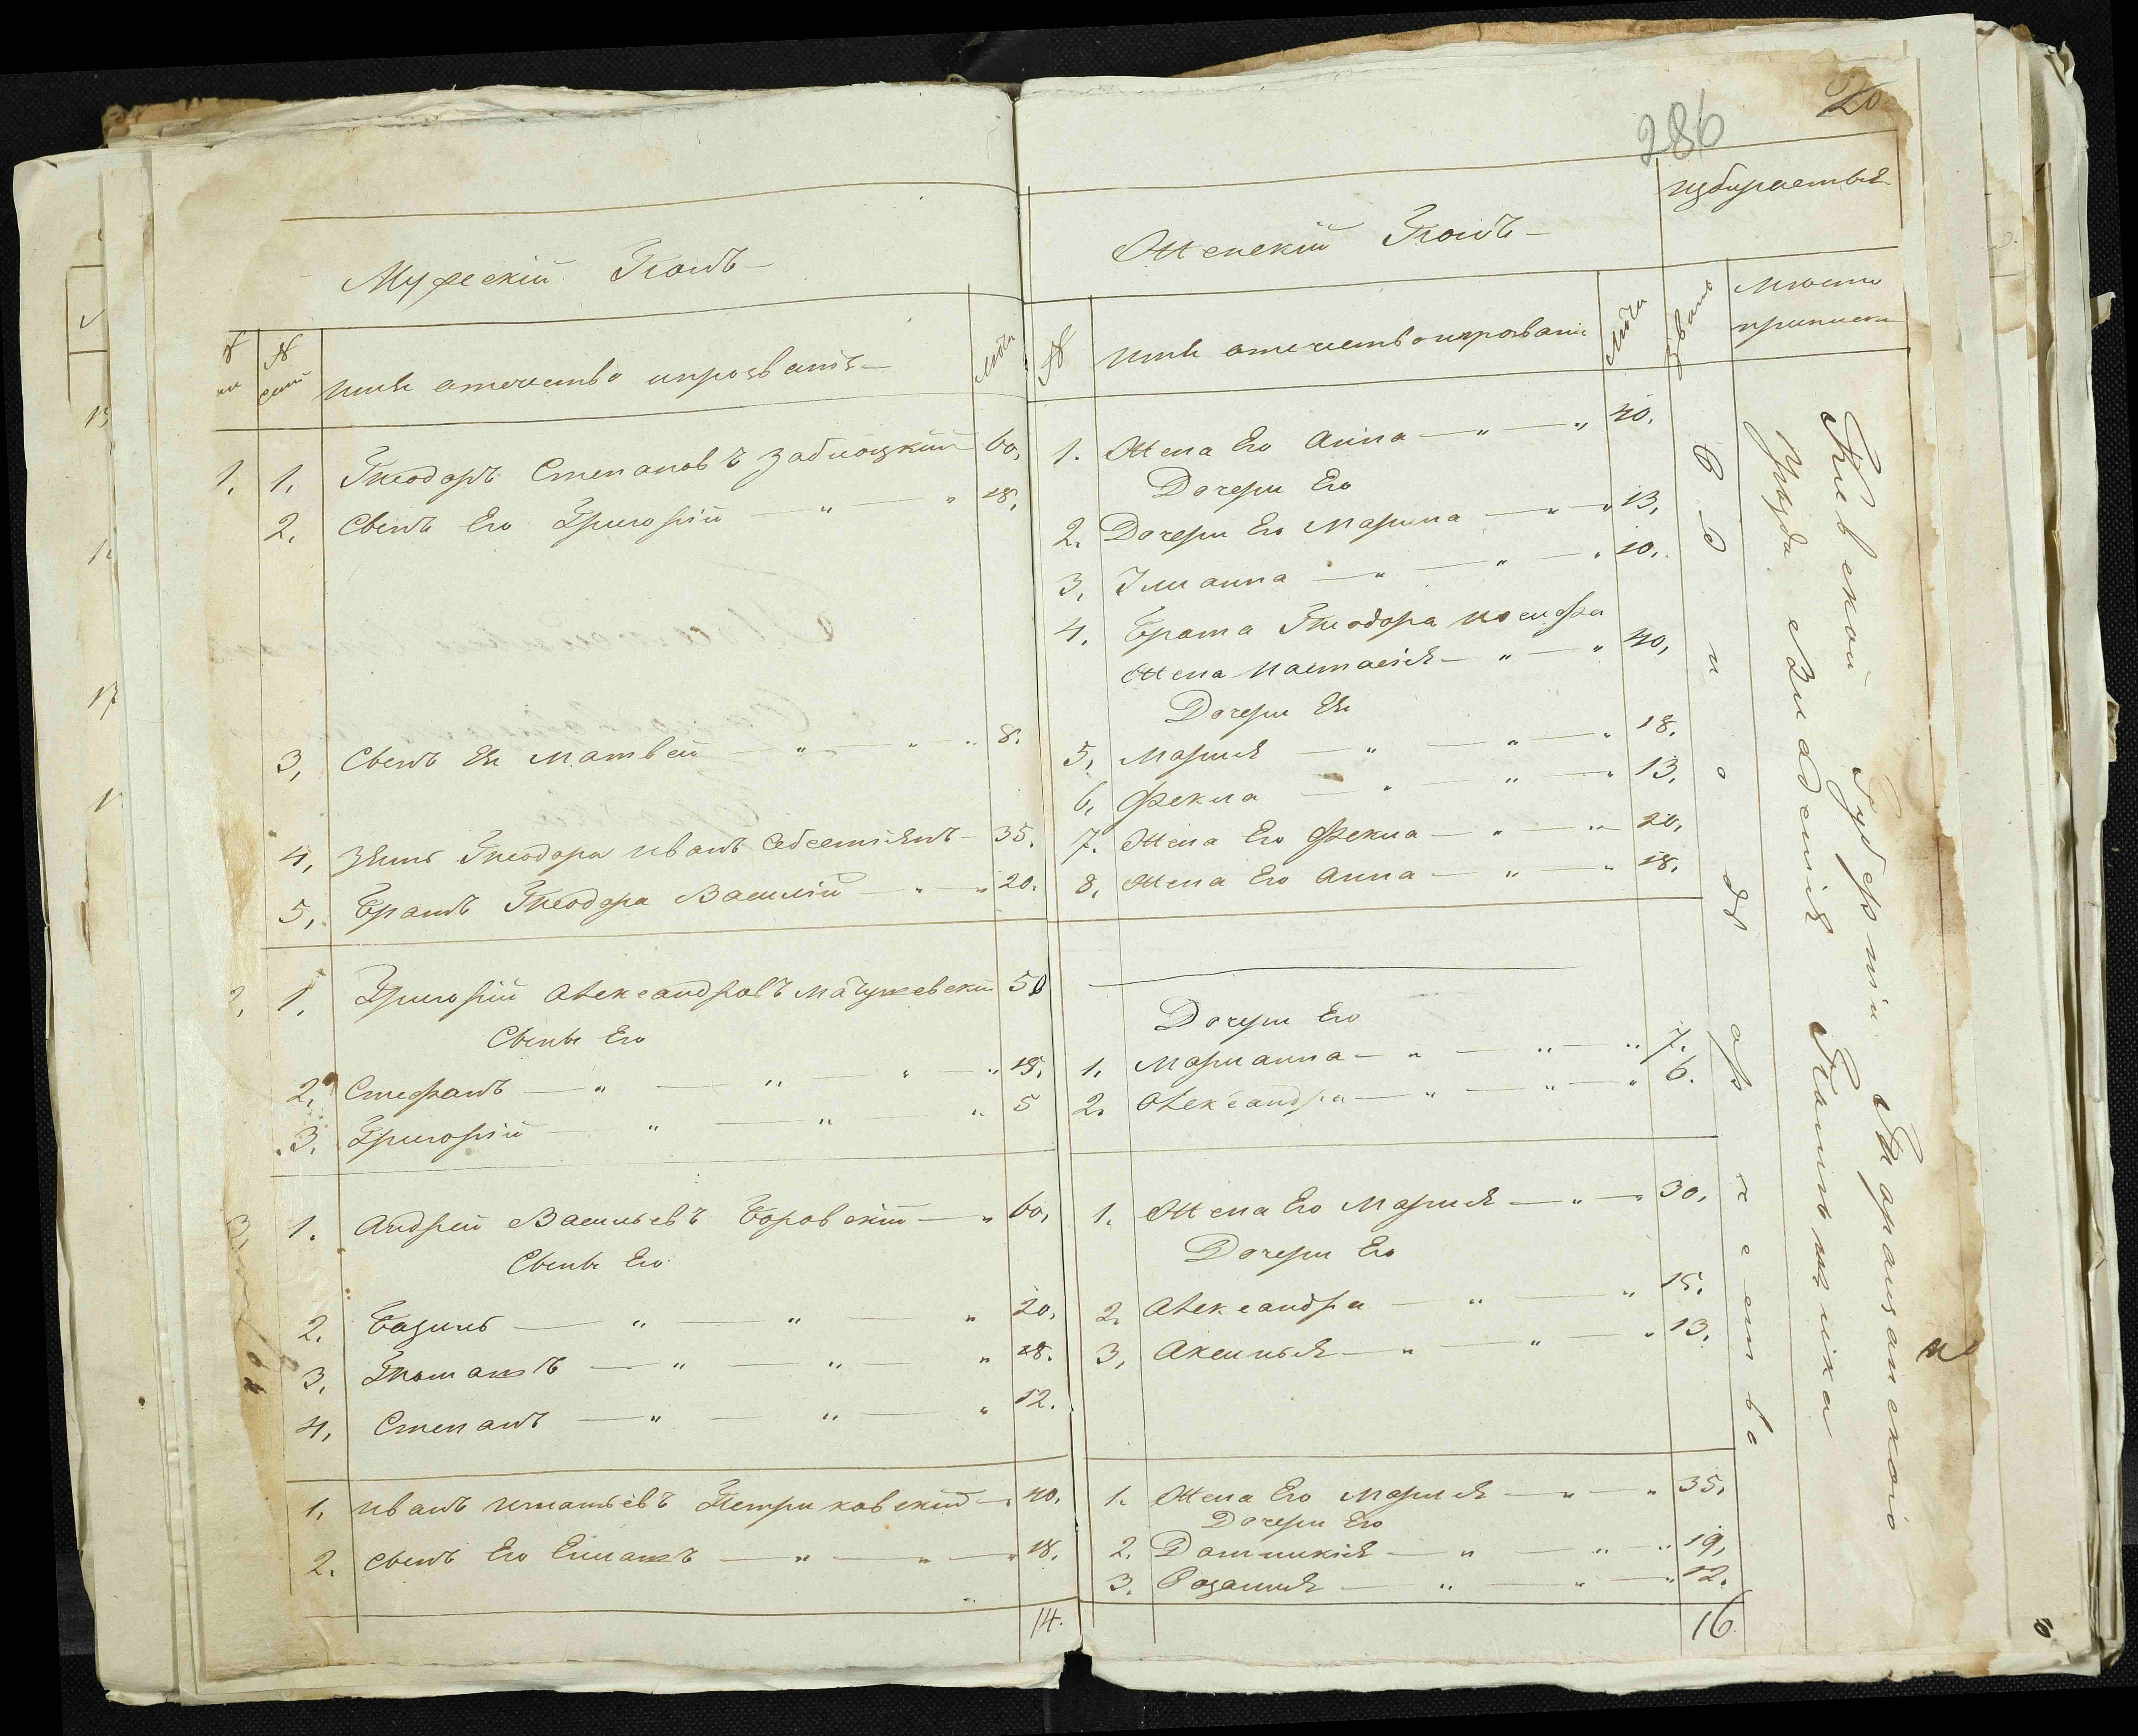 286
20
Мужескій Полъ
№
№ сем
имя отечество ипрозваніе
лѣта
1. 1. Теодоръ Степановъ Заблоцкій 60.
2. Сынъ Его Григорій " " 18.
3. Сынъ Ея Матвей " " " 8.
4. Зять Теодора Иванъ 35.
5. Братъ Теодора Василій " " 20.
2. 1. Григорій Александровъ Мачушевскій 50
Сыны Его
2. Стефанъ " " " " 15.
3. Григорій " " " 5
3. 1. Андрей Васильевъ Боровскій " 60.
Сыны Его
2. Базиль " " " 20.
3. Томашъ " " " 18.
4. Степанъ " " " 12.
1. Иванъ Игнатьевъ Петриковскій 40.
2. Сынъ Его " " " 18.
14.
Женскій Полъ
избираетъ
№
имя отечество ипрозвани
лѣта
званіе
место приписки
1. Жена Его Анна " " 40.
Дочери Его
2. Дочери Его Марина " " 13.
3. Юлианна " " " 10.
4. Брата Теодора Иосифа
Жена Настасія " " 40.
Дочери Ея
5. Марія " " " 18.
6. Фекла " " " 13.
7. Жена Его Фекла " " 20.
8. Жена Его Анна " " 18.
Дочери Его
1. Марианна " " " 7.
2. Александра " " " 6.
1. Жена Его Марія " " 30.
Дочери Его
2. Александра " " 15.
3. Аксинья " " " 13.
1. Жена Его Марія " " 35.
Дочери Его
2. Доминикія " " " 19.
3. Розалия " " " 12.
16.
Киевской Губерніи Таращанского
Уезда Владенія